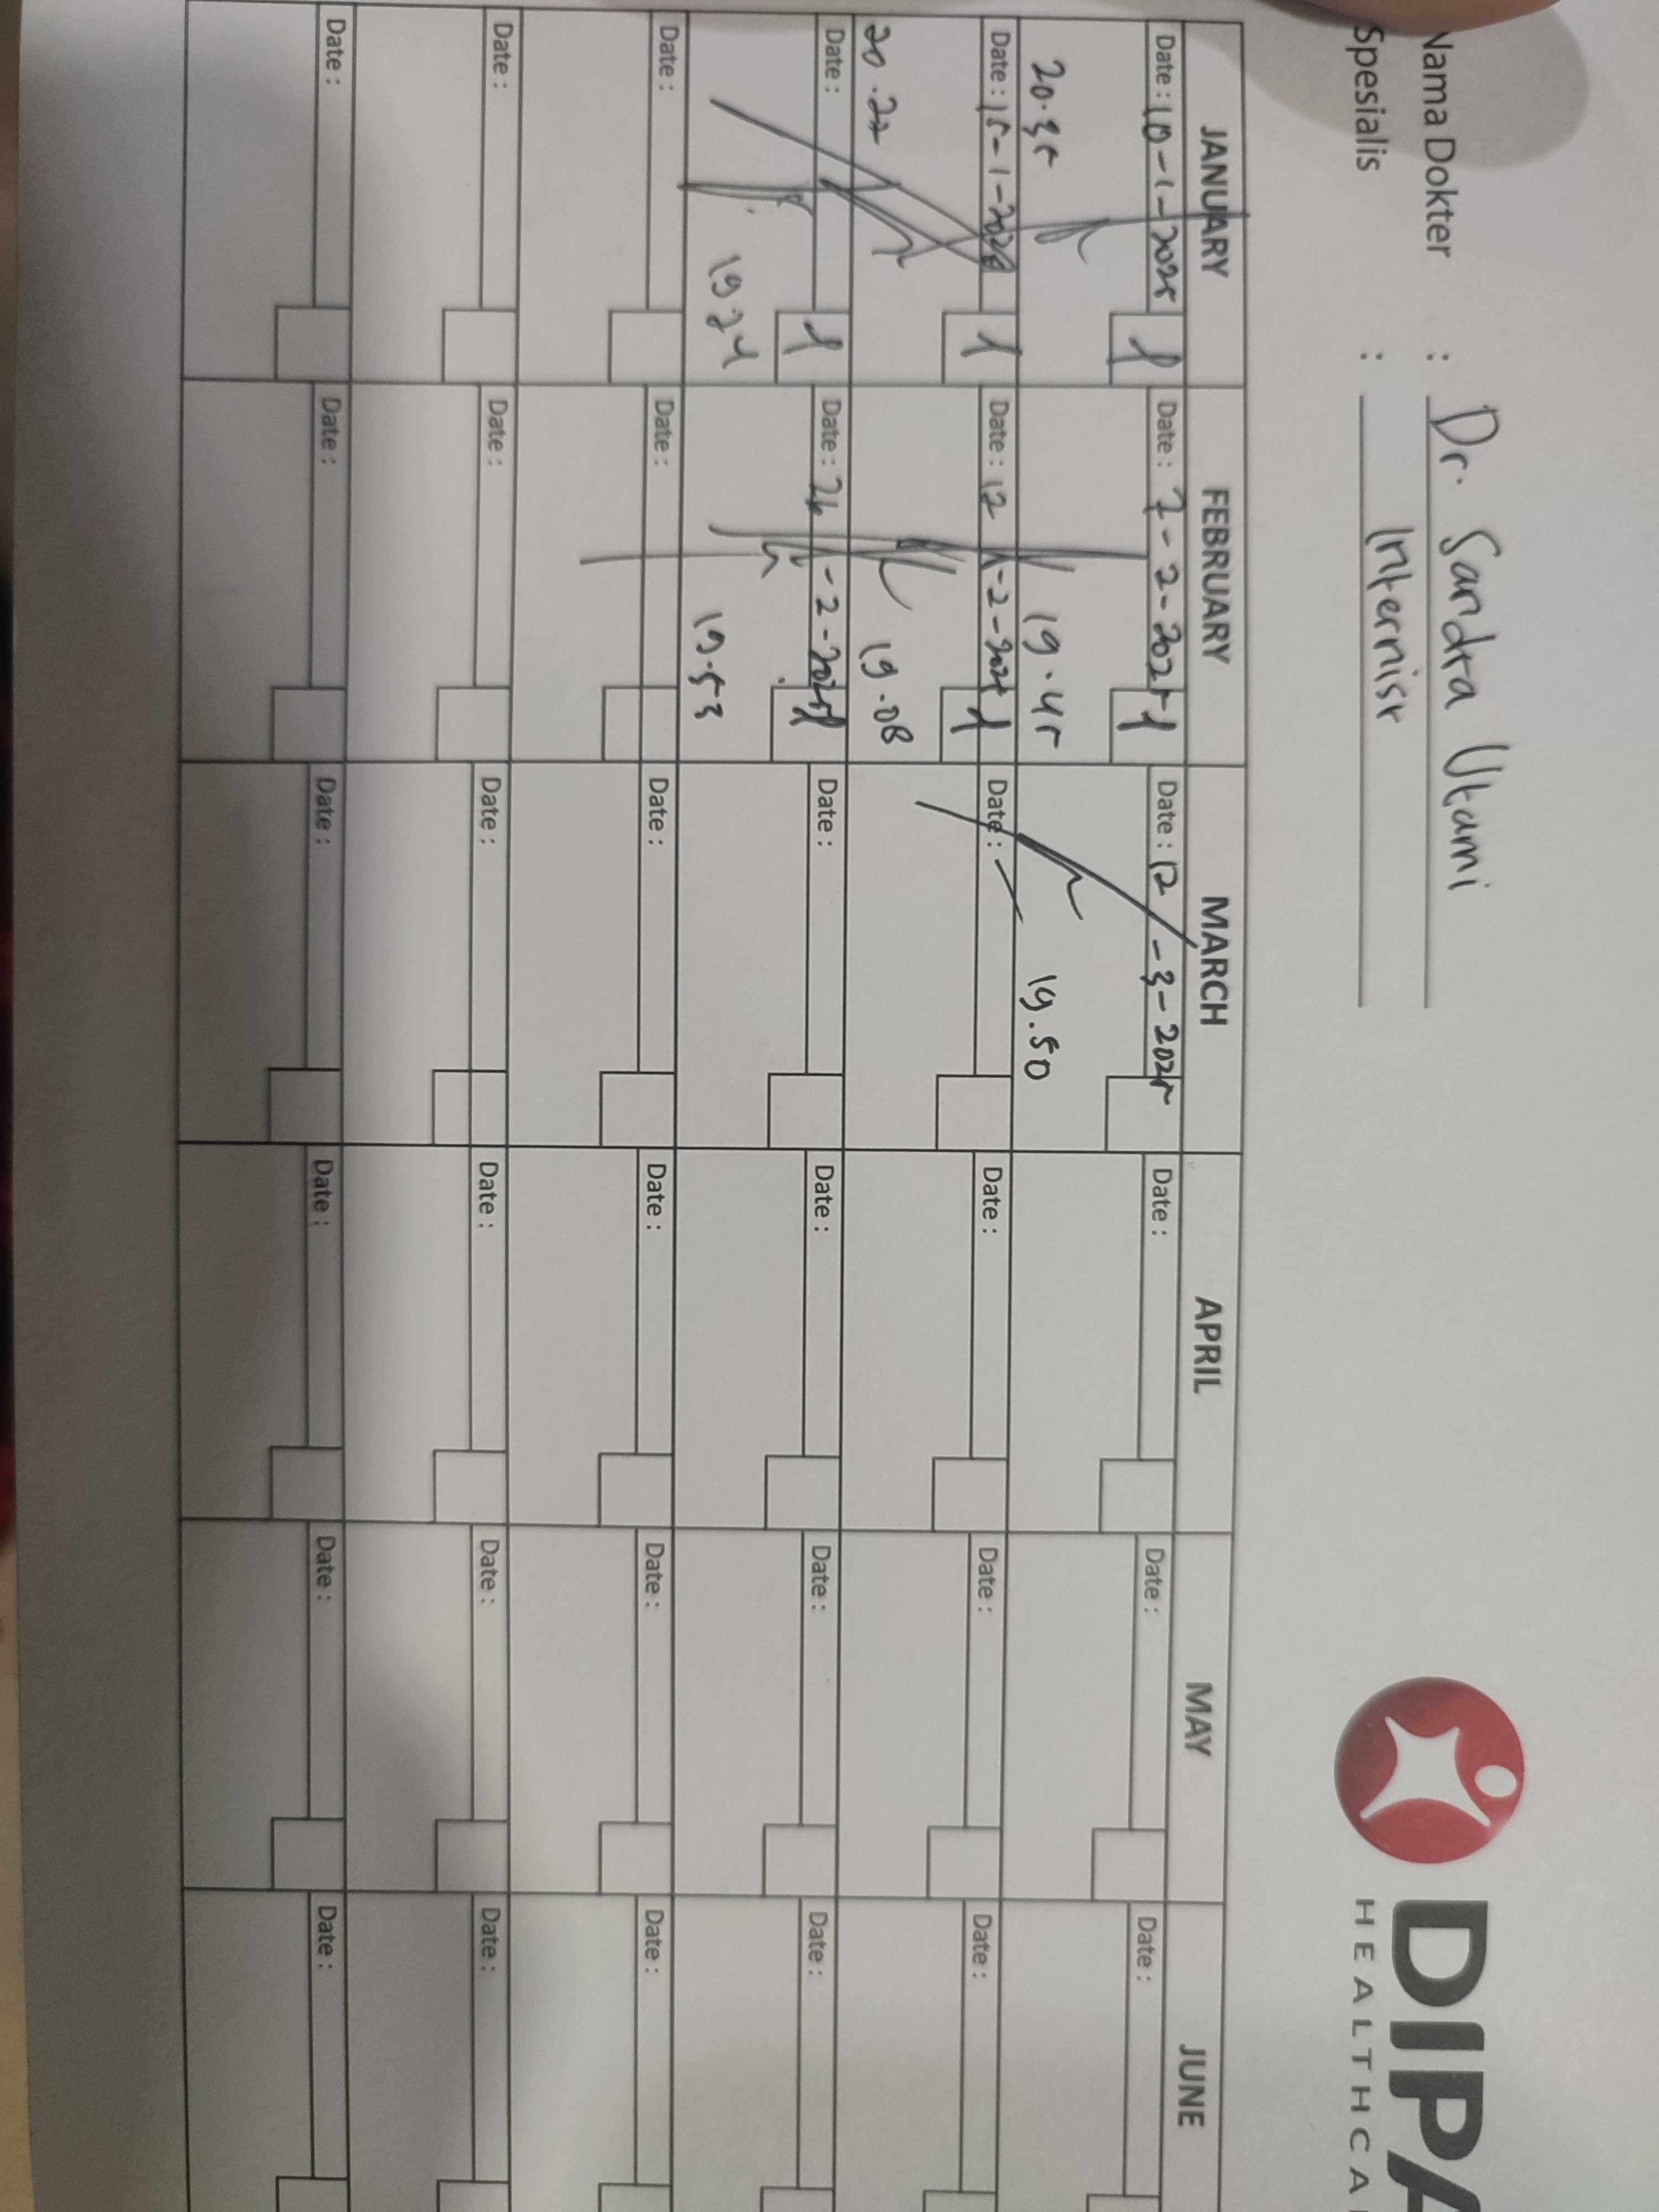 Nama Dokter : Dr. Sandra Utami
Spesialis : Internisr
DIPA
HEALTHCA
JANUARY FEBRUARY MARCH APRIL MAY JUNE
Date : 10-1-2025 1 Date : 7-2-2025 1 Date : 12-3-2025 Date : Date : Date :
20.35 19.45 19.50
Date : 15-1-2025 1 Date : 12-2-2025 1 Date : Date : Date : Date :
20.22 19.08
Date : 1 Date : 24-2-2025 1 Date : Date : Date : Date :
19.21 19.53
Date : Date : Date : Date : Date : Date :
Date : Date : Date : Date : Date : Date :
Date : Date : Date : Date : Date : Date :